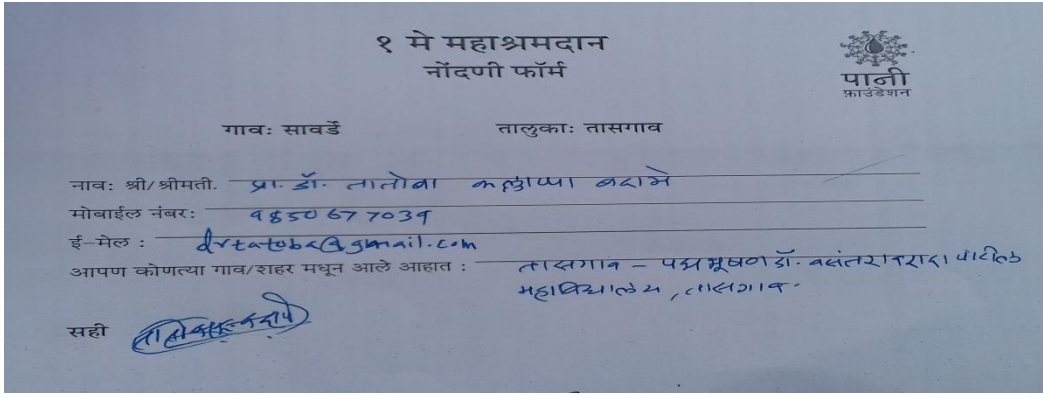 १ मे महाश्रमदान
नोंदणी फॉर्म
पानी
फ़ाउंडेशन
गावः सावर्डे तालुकाः तासगाव
नावः श्री/श्रीमती. प्रा. डॉ. तातोबा कलाप्पा बदामे
मोबाईल नंबरः 9850677039
ई-मेल : drtatoba@gmail.com
आपण कोणत्या गाव/शहर मधून आले आहात : तासगाव - पद्मभूषण डॉ. वसंतरावदादा पाटील
महाविद्यालय, तासगाव.
सही